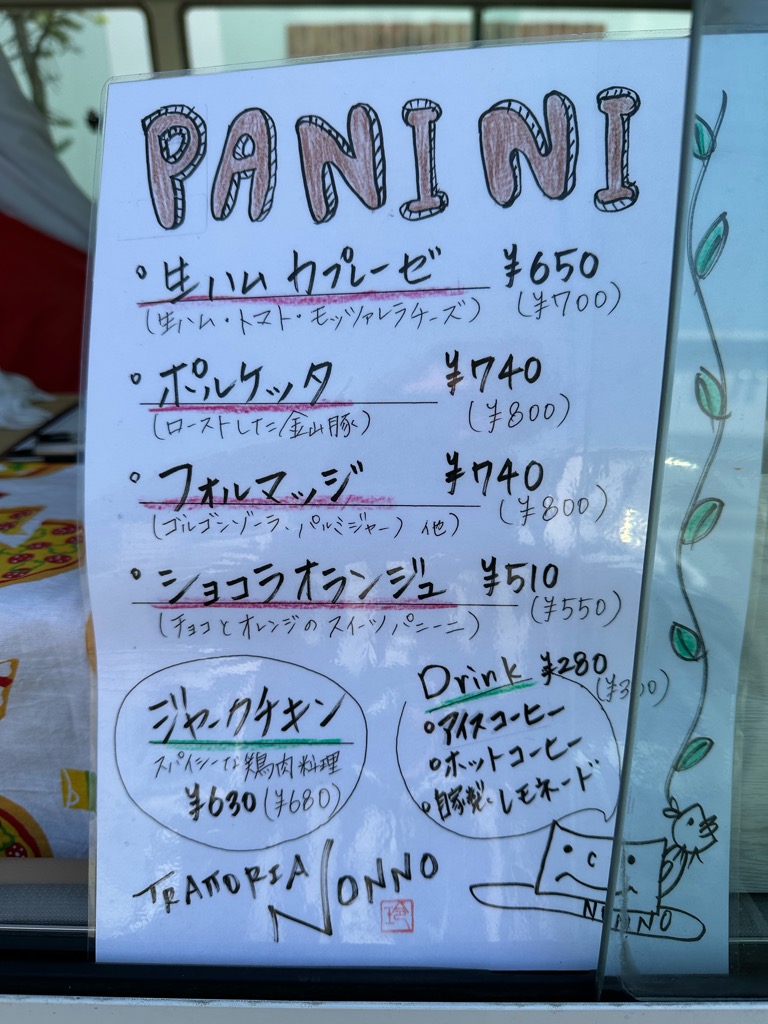 PANINI
• 生ハム カプレーゼ ¥650
(生ハム・トマト・モッツァレラチーズ) (¥700)
• ポルケッタ ¥740
(ローストした金山豚) (¥800)
• フォルマッジ ¥740
(ゴルゴンゾーラ、パルミジャーノ 他) (¥800)
• ショコラオランジュ ¥510
(チョコとオレンジのスイーツパニーニ) (¥550)
ジャークチキン
スパイシーな鶏肉料理
¥630 (¥680)
Drink ¥280
(¥300)
• アイスコーヒー
• ホットコーヒー
• 自家製レモネード
TRATTORIA NONNO
NONNO